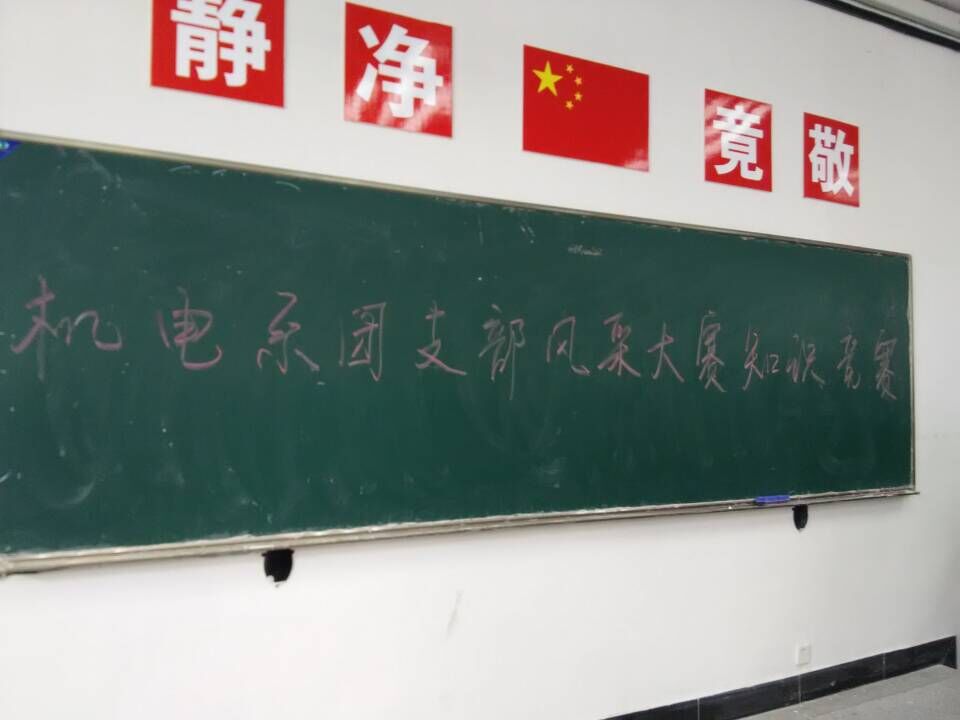 静 净 竟 敬
机电系团支部风采大赛知识竞赛